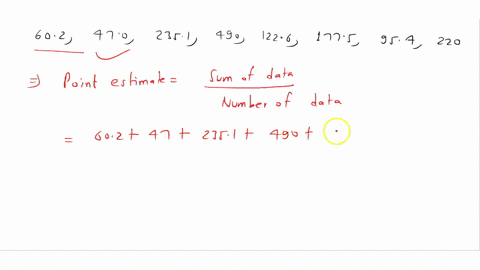 60.2, 47.0, 235.1, 490, 122.6, 177.5, 95.4, 220
⇒ Point estimate = Sum of data
Number of data
= 60.2 + 47 + 235.1 + 490 +